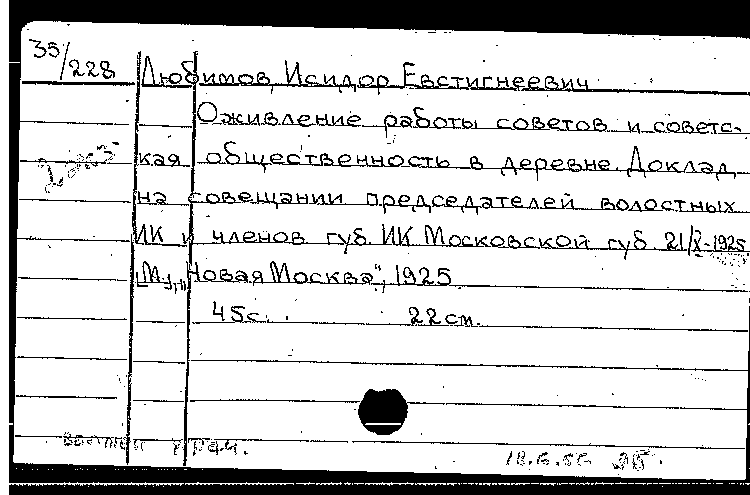 35/228
Любимов, Исидор Евстигнеевич
Оживление работы советов и советс-
кая общественность в деревне. Доклад
на совещании председателей волостных
ИК и членов губ. ИК Московской губ. 21/X-1925
[М.], "Новая Москва", 1925
45с. 22см.